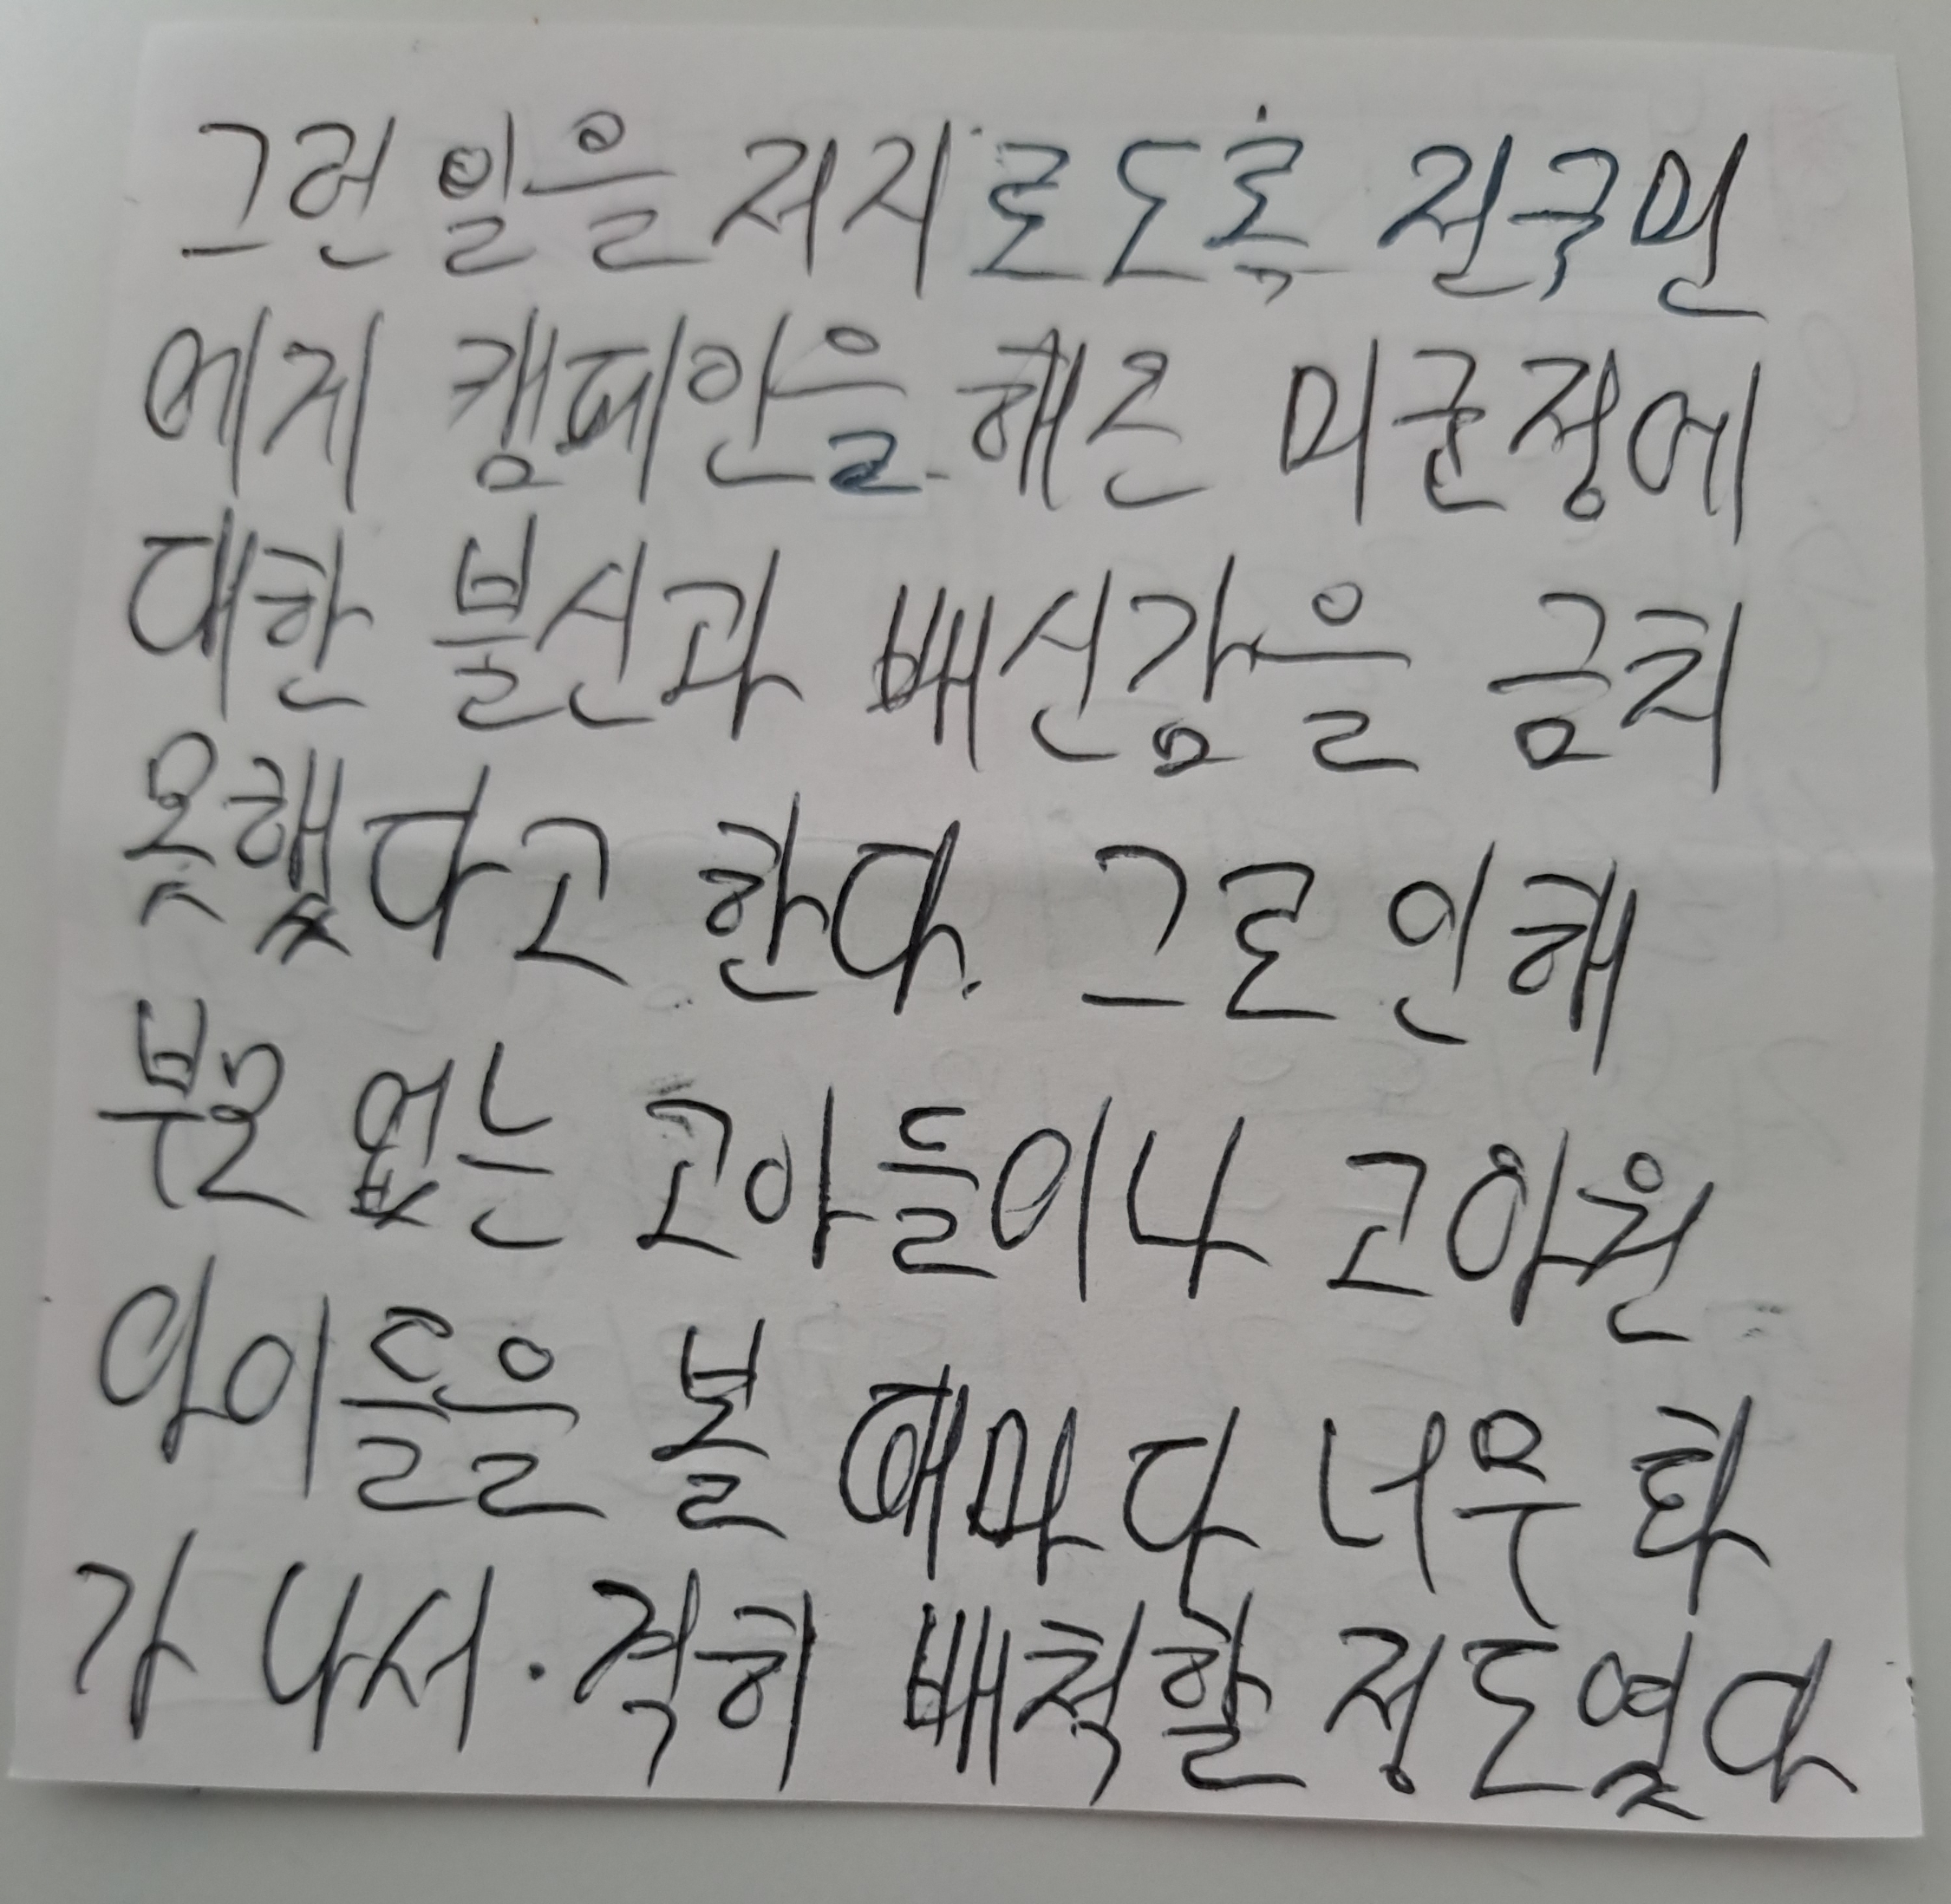 그런 일을 저지로도록 전국민
에게 캠페인을 해온 미군정에
대한 불신과 배신감을 금치
못했다고 한다. 그로 인해
부모 없는 고아들이나 고아원
아이들을 볼 때마다 너무 화
가 나서. 격히 배척할 정도였다